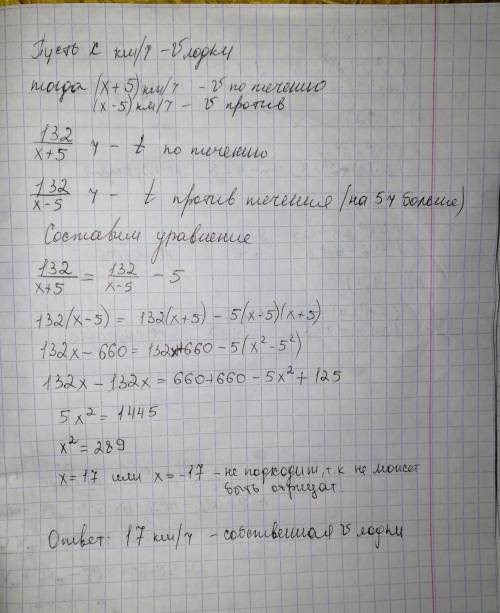 Пусть x км/ч – v лодки
тогда (x+5) км/ч – v по течению
(x-5) км/ч – v против
132/x+5 ч – t по течению
132/x-5 ч – t против течения (на 5ч больше)
Составим уравнение
132/x+5 = 132/x-5 - 5
132(x-5) = 132(x+5) - 5(x-5)(x+5)
132x - 660 = 132x+660 - 5(x²-5²)
132x - 132x = 660+660 - 5x² + 125
5x² = 1445
x² = 289
x=17 или x=-17 - не подходит, т.к не может
быть отрицат.
Ответ: 17 км/ч - собственная v лодки